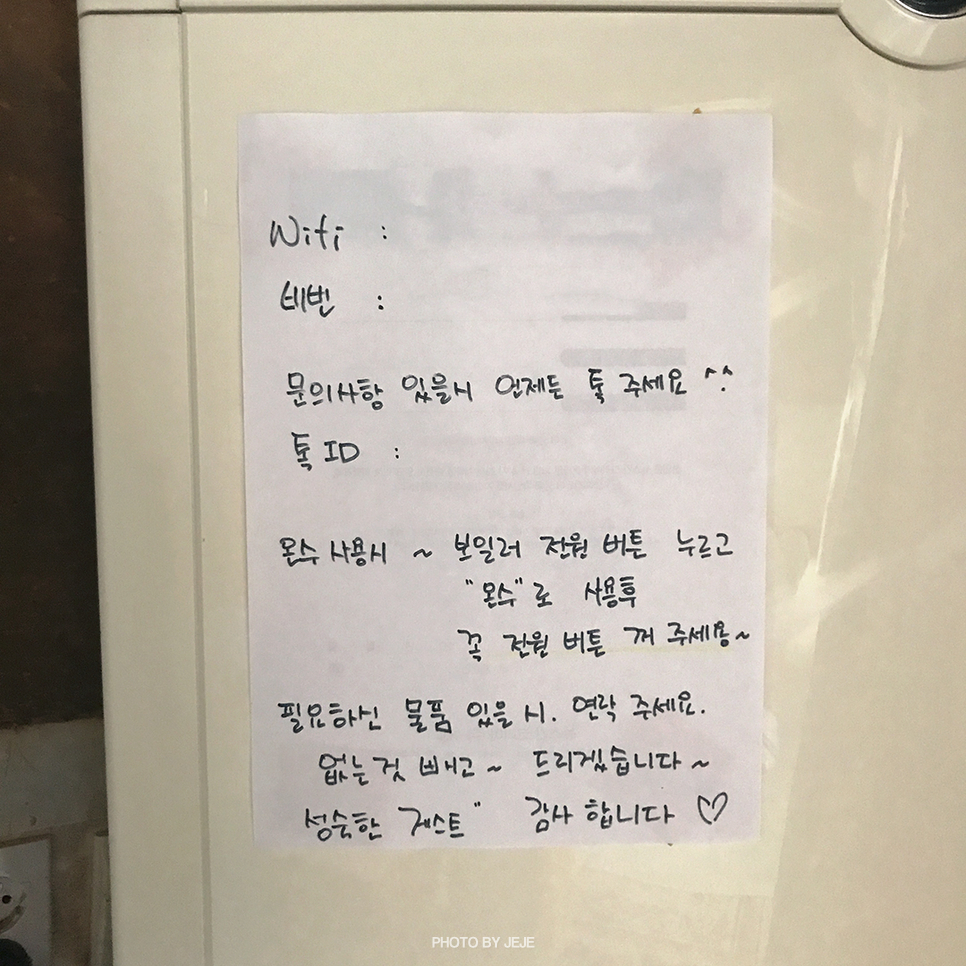 Wifi :
비번 :
문의사항 있을시 언제든 톡 주세요 ^^
톡 ID :
온수 사용시 ~ 보일러 전원 버튼 누르고
"온수"로 사용후
꼭 전원 버튼 꺼 주세용~
필요하신 물품 있을 시. 연락 주세요.
없는것 빼고~ 드리겠습니다~
성숙한 게스트" 감사합니다 ♡
PHOTO BY JEJE